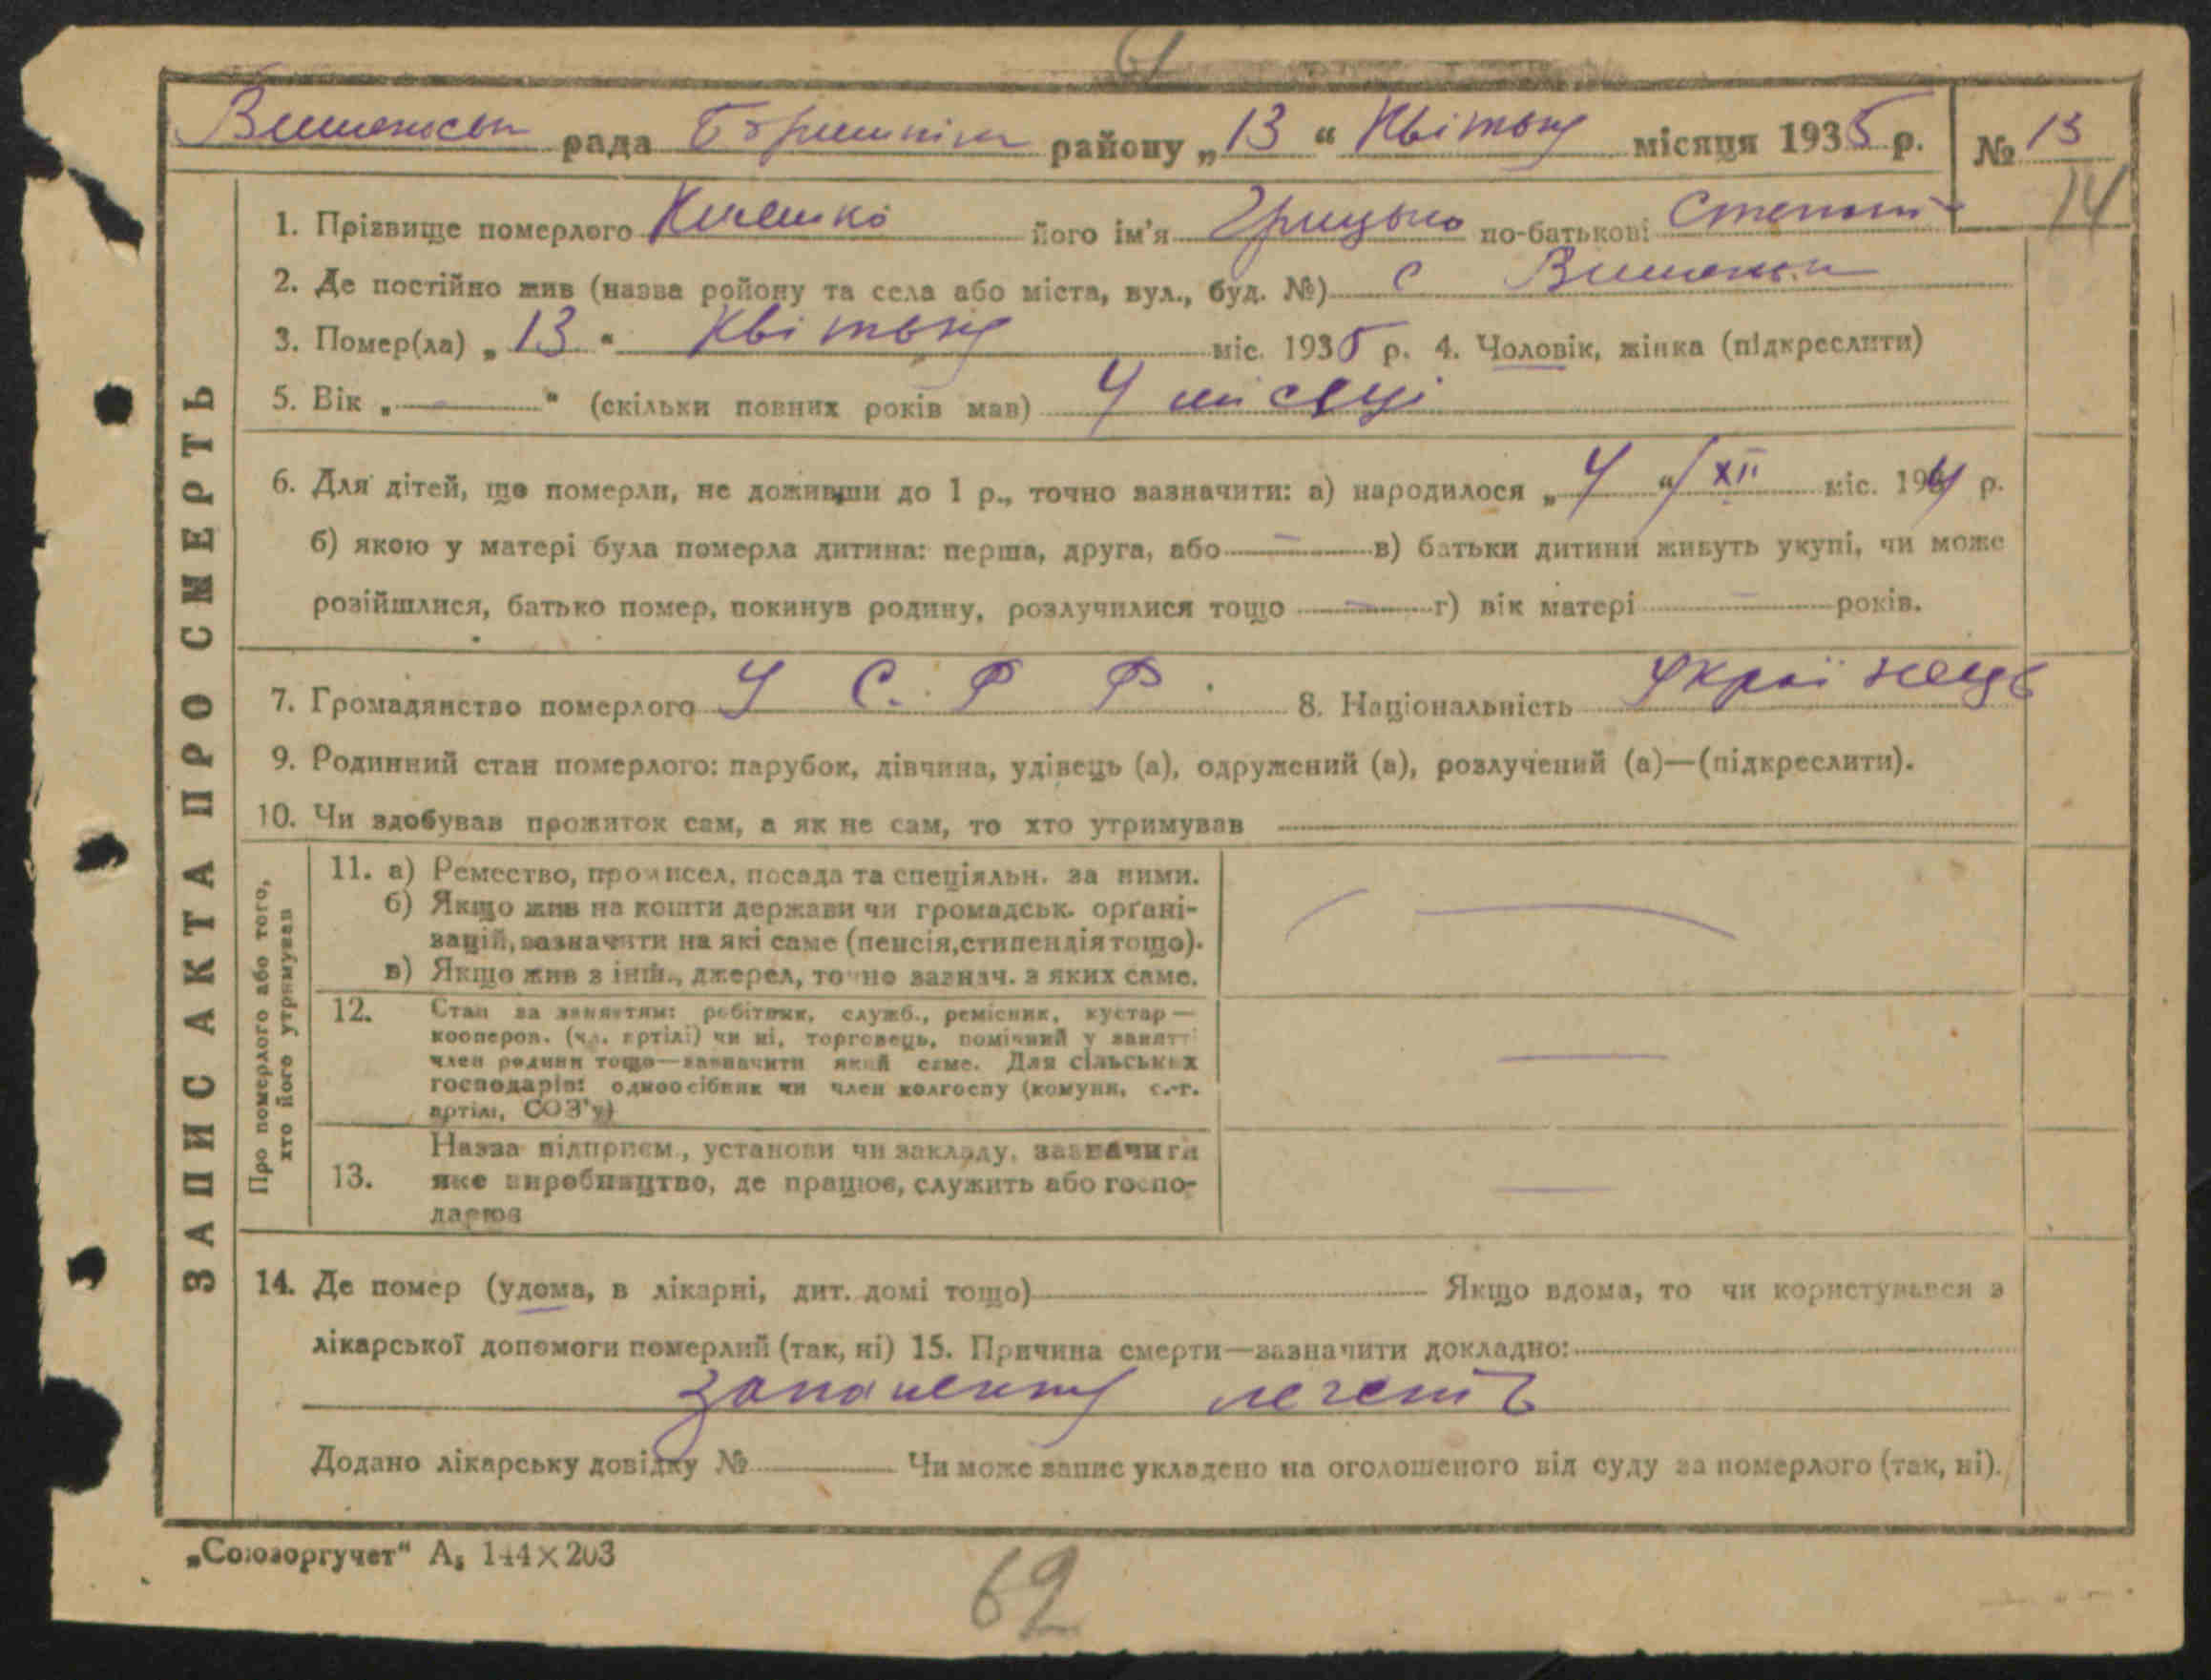 61
рада Боришпіль району „13" Квітня місяця 1935 р. № 13
14
1. Прізвище померлого його ім'я Грицько по-батькові Степан
2. Де постійно жив (назва ройону та села або міста, вул., буд. №) с Вишеньки
3. Помер(ла) „13" Квітня міс. 1935 р. 4. Чоловік, жінка (підкреслити)
5. Вік „—" (скільки повних років мав) 4 місяці
6. Для дітей, що померли, не доживши до 1 р., точно зазначити: а) народилося „4"/XII міс. 1934 р.
б) якою у матері була померла дитина: перша, друга, або — в) батьки дитини живуть укупі, чи може
розійшлися, батько помер, покинув родину, розлучилися тощо — г) вік матері — років.
7. Громадянство померлого У С. Р Р. 8. Національність Українець
9. Родинний стан померлого: парубок, дівчина, удівець (а), одружений (а), розлучений (а)—(підкреслити).
10. Чи здобував прожиток сам, а як не сам, то хто утримував
ЗАПИС АКТА ПРО СМЕРТЬ
Про померлого або того,
хто його утримував
11. а) Ремество, промисел, посада та спеціяльн. за ними.
б) Якщо жив на кошти держави чи громадськ. орґані-
зацій, зазначити на які саме (пенсія, стипендія тощо).
в) Якщо жив з інш., джерел, точно зазнач. з яких саме.
12. Стан за заняттям: робітник, служб., ремісник, кустар—
кооперов. (чл. артілі) чи ні, торговець, помічний у занятті
член родини тощо—зазначити який саме. Для сільських
господарів: одноосібник чи член колгоспу (комуни, с.-г.
артілі, СОЗ'у)
13. Назва підприєм., установи чи закладу, зазначити
яке виробництво, де працює, служить або госпо-
дарює
14. Де помер (удома, в лікарні, дит. домі тощо) Якщо вдома, то чи користувався з
лікарської допомоги померлий (так, ні) 15. Причина смерти—зазначити докладно:
запалення легенів
Додано лікарську довідку № Чи може запис укладено на оголошеного від суду за померлого (так, ні).
„Союзоргучет" А₅ 144×203
62